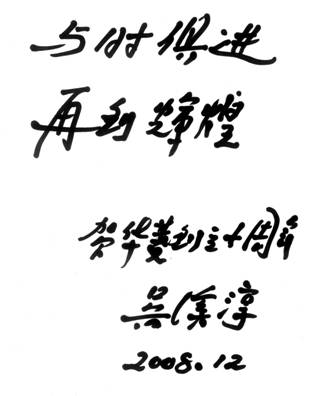 与时俱进
再创辉煌
贺华创立十周年
吴溪淳
2008.12